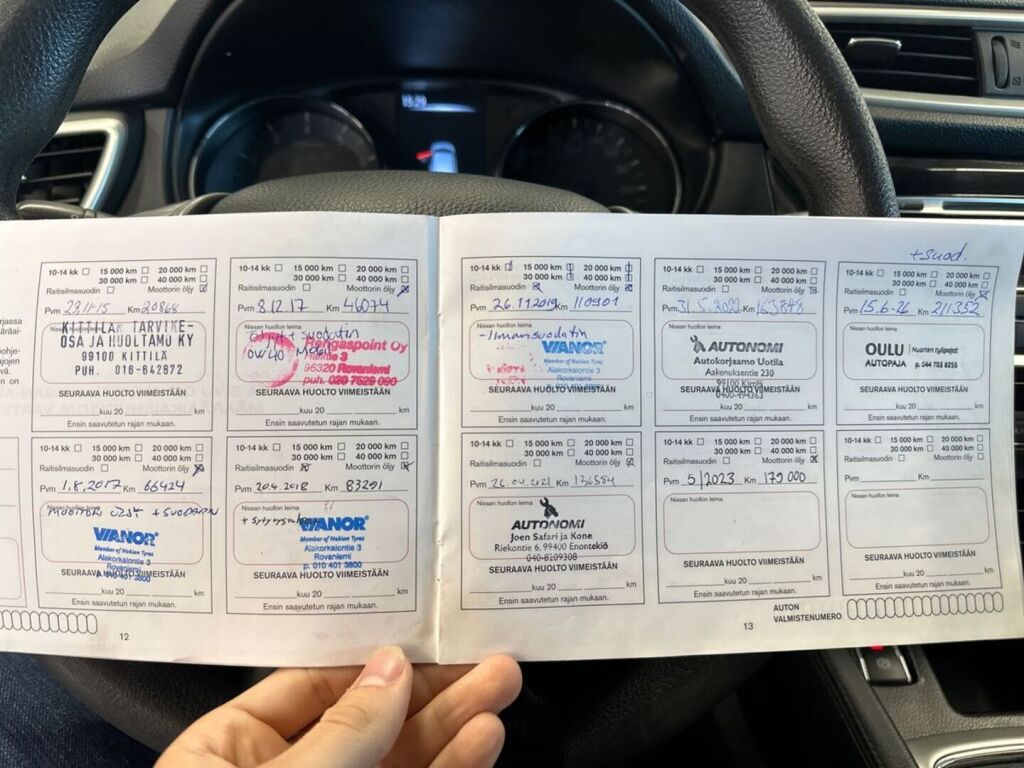 13:29
10-14 kk 15 000 km 20 000 km
30 000 km 40 000 km
Raitisilmasuodin Moottorin öljy
Pvm 23.11-15 Km 20868
KITTILÄN TARVIKE-
OSA JA HUOLTAMO KY
99100 KITTILÄ
PUH. 016-642872
SEURAAVA HUOLTO VIIMEISTÄÄN
kuu 20 km
Ensin saavutetun rajan mukaan.
10-14 kk 15 000 km 20 000 km
30 000 km 40 000 km
Raitisilmasuodin Moottorin öljy
Pvm 1.8.2017 Km 66424
MOOTTORI ÖLJYT + SUODATIN
VIANOR
Member of Nokian Tyres
Alakorkalontie 3
Rovaniemi
p. 010 401 3800
SEURAAVA HUOLTO VIIMEISTÄÄN
kuu 20 km
Ensin saavutetun rajan mukaan.
10-14 kk 15 000 km 20 000 km
30 000 km 40 000 km
Raitisilmasuodin Moottorin öljy
Pvm 8.12.17 Km 46074
Nissan huollon leima
öljyt + suodatin
0W40
Rengaspoint Oy
3
96320 Rovaniemi
puh. 020 7529 090
SEURAAVA HUOLTO VIIMEISTÄÄN
kuu 20 km
Ensin saavutetun rajan mukaan.
10-14 kk 15 000 km 20 000 km
30 000 km 40 000 km
Raitisilmasuodin Moottorin öljy
Pvm 20.4.2018 Km 83201
Nissan huollon leima
VIANOR
Member of Nokian Tyres
Alakorkalontie 3
Rovaniemi
p. 010 401 3800
SEURAAVA HUOLTO VIIMEISTÄÄN
kuu 20 km
Ensin saavutetun rajan mukaan.
12
10-14 kk 15 000 km 20 000 km
30 000 km 40 000 km
Raitisilmasuodin Moottorin öljy
Pvm 26.11.2019 Km 110901
Nissan huollon leima
- Ilmansuodatin
VIANOR
Member of Nokian Tyres
Alakorkalontie 3
Rovaniemi
SEURAAVA HUOLTO VIIMEISTÄÄN
kuu 20 km
Ensin saavutetun rajan mukaan.
10-14 kk 15 000 km 20 000 km
30 000 km 40 000 km
Raitisilmasuodin Moottorin öljy
Pvm 26.04.2021 Km 136584
Nissan huollon leima
AUTONOMI
Joen Safari ja Kone
Riekontie 6, 99400 Enontekiö
040-8209308
SEURAAVA HUOLTO VIIMEISTÄÄN
kuu 20 km
Ensin saavutetun rajan mukaan.
10-14 kk 15 000 km 20 000 km
30 000 km 40 000 km
Raitisilmasuodin Moottorin öljy
Pvm 31.5.2022 Km
Nissan huollon leima
AUTONOMI
Autokorjaamo Uotila
Aakenuksentie 230
99100 Kittilä
0400-494363
SEURAAVA HUOLTO VIIMEISTÄÄN
kuu 20 km
Ensin saavutetun rajan mukaan.
10-14 kk 15 000 km 20 000 km
30 000 km 40 000 km
Raitisilmasuodin Moottorin öljy
Pvm 5/2023 Km 179 000
Nissan huollon leima
SEURAAVA HUOLTO VIIMEISTÄÄN
kuu 20 km
Ensin saavutetun rajan mukaan.
+suod.
10-14 kk 15 000 km 20 000 km
30 000 km 40 000 km
Raitisilmasuodin Moottorin öljy
Pvm 15.6-26 Km 211352
Nissan huollon leima
OULU Nuorten työpajat
AUTOPAJA p. 044 703 8255
SEURAAVA HUOLTO VIIMEISTÄÄN
kuu 20 km
Ensin saavutetun rajan mukaan.
10-14 kk 15 000 km 20 000 km
30 000 km 40 000 km
Raitisilmasuodin Moottorin öljy
Pvm Km
Nissan huollon leima
SEURAAVA HUOLTO VIIMEISTÄÄN
kuu 20 km
Ensin saavutetun rajan mukaan.
13
AUTON
VALMISTENUMERO